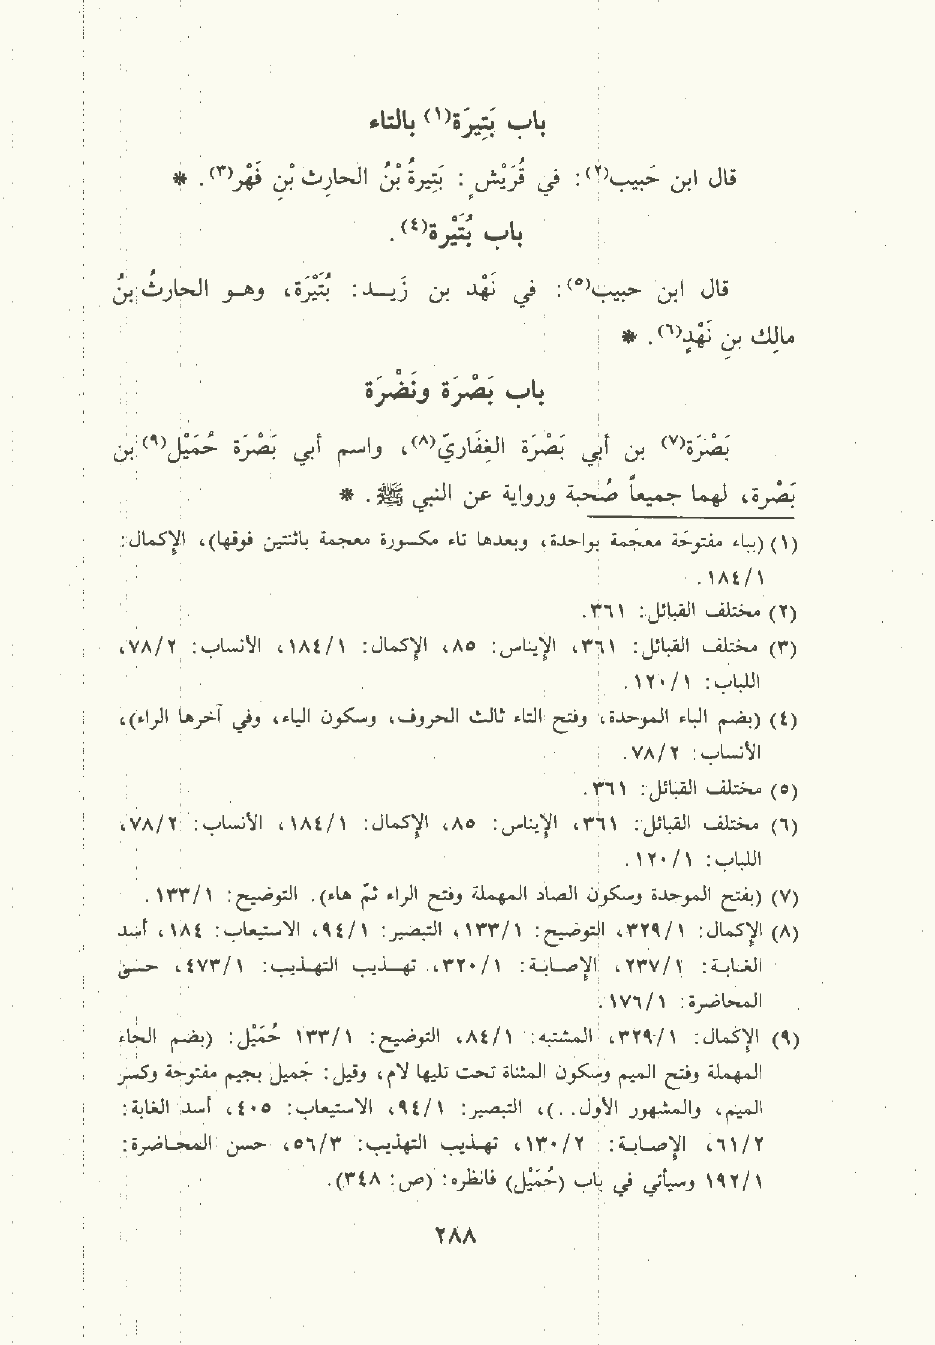 باب بَتِيرَة(١) بالتاء
قال ابن حَبيب(٢): في قُرَيْشٍ: بَتِيرةُ بْنُ الحارِث بْنِ فَهْر(٣). *
باب بُتَيْرة(٤).
قال ابن حبيب(٥): في نَهْد بن زَيـد: بُتَيْرَة، وهـو الحارثُ بنُ
مالِك بنِ نَهْدٍ(٦). *
باب بَصْرَة ونَضْرَة
بَصْرَة(٧) بن أبي بَصْرَة الغِفَاريّ(٨)، واسم أبي بَصْرَة حُمَيْل(٩) بن
بَصْرة، لهما جميعاً صُحبة ورواية عن النبي ﷺ. *
(١) (بباء مفتوحَة معجَمة بواحدة، وبعدها تاء مكسورة معجمة باثنتين فوقها)، الإكمال:
١٨٤/١.
(٢) مختلف القبائل: ٣٦١.
(٣) مختلف القبائل: ٣٦١، الإيناس: ٨٥، الإكمال: ١٨٤/١، الأنساب: ٧٨/٢،
اللباب: ١٢٠/١.
(٤) (بضم الباء الموحدة، وفتح التاء ثالث الحروف، وسكون الياء، وفي آخرها الراء)،
الأنساب: ٧٨/٢.
(٥) مختلف القبائل: ٣٦١.
(٦) مختلف القبائل: ٣٦١، الإيناس: ٨٥، الإكمال: ١٨٤/١، الأنساب: ٧٨/٢،
اللباب: ١٢٠/١.
(٧) (بفتح الموحدة وسكون الصاد المهملة وفتح الراء ثمّ هاء). التوضيح: ١٣٣/١.
(٨) الإكمال: ٣٢٩/١، التوضيح: ١٣٣/١، التبصير: ٩٤/١، الاستيعاب: ١٨٤، أسد
الغـابـة: ٢٣٧/١، الإصـابـة: ٣٢٠/١، تهـذيب التهـذيب: ٤٧٣/١، حسـن
المحاضرة: ١٧٦/١.
(٩) الإكمال: ٣٢٩/١، المشتبه: ٨٤/١، التوضيح: ١٣٣/١ حُمَيْل: (بضم الحاء
المهملة وفتح الميم وسكون المثناة تحت تليها لام، وقيل: جَميل بجيم مفتوحة وكسر
الميم، والمشهور الأول..)، التبصير: ٩٤/١، الاستيعاب: ٤٠٥، أسد الغابة:
٦١/٢، الإصـابـة: ١٣٠/٢، تهـذيب التهذيب: ٥٦/٣، حسن المحـاضرة:
١٩٢/١ وسيأتي في باب (حُمَيْل) فانظره: (ص: ٣٤٨).
٢٨٨